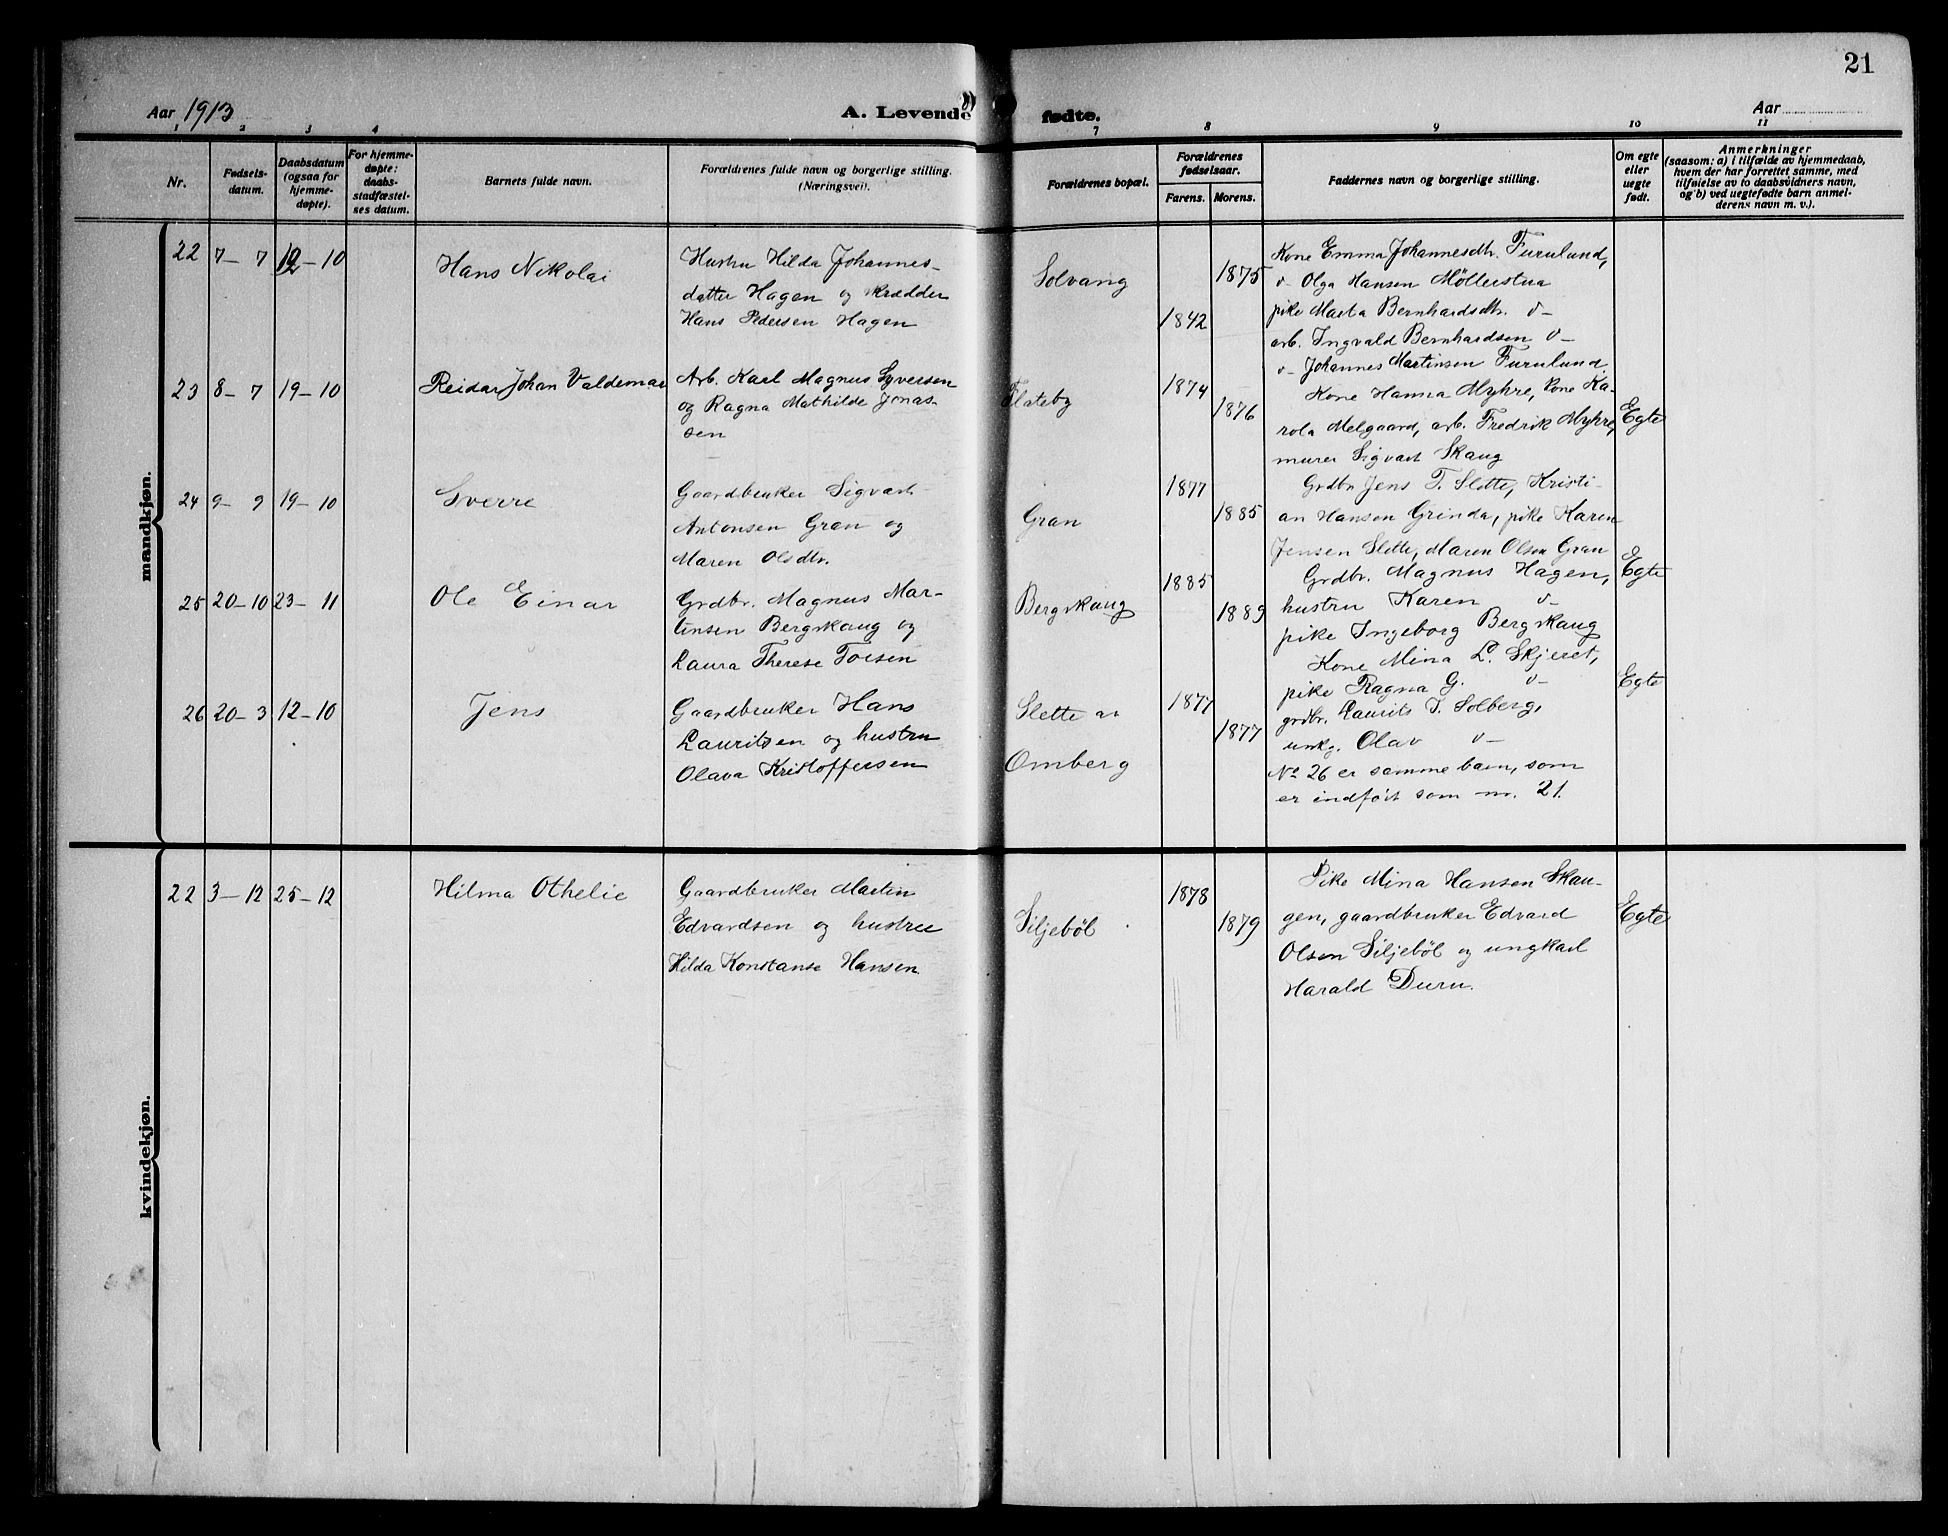 21
Aar 1913
A. Levende fødte.
Aar
1 2 3 4 7 8 9 10 11
Nr.
Fødsels-
datum.
Daabsdatum
(ogsaa for
hjemme-
døpte).
For hjemme-
døpte:
daabs-
stadfæstel-
ses datum.
Barnets fulde navn.
Forældrenes fulde navn og borgerlige stilling.
(Næringsvei).
Forældrenes bopæl.
Forældrenes
fødselsaar.
Farens. Morens.
Faddernes navn og borgerlige stilling.
Om egte
eller
uegte
født.
Anmerkninger
(saasom: a) i tilfælde av hjemmedaab,
hvem der har forrettet samme, med
tilføielse av to daabsvidners navn,
og b) ved uegtefødte barn anmel-
derens navn m. v.).
mandkjøn.
22 7-7 12-10
Hans Nikolai
Hustru Hilda Johannes-
datter Hagen og skrædder
Hans Pedersen Hagen
Solvang
1875
1842
Kone Emma Johannesdtr. Furulund,
v- Olga Hansen Möllerstua
pike Marta Bernhardsdtr. v-
arb. Ingvald Bernhardsen v-
v- Johannes Martinsen Furulund,
23 8-7 19-10
Reidar Johan Valdemar
Arb. Karl Magnus Syversen
og Ragna Mathilde Jonas-
sen
Flateby
1874
1876
Kone Hanna Myhre, kone Ka-
rola Melgaard, arb. Fredrik Myhre,
murer Sigvart Skaug
Egte
24 9-9 19-10
Sverre
Gaardbruker Sigvart
Antonsen Gran og
Maren Olsdtr.
Gran
1877
1885
Grdbr Jens T. Slette, Kristi-
an Hansen Grinda, pike Karen
Jensen Slette, Maren Olsen Gran
Egte
25 20-10 23-11
Ole Einar
Grdbr. Magnus Mar-
tinsen Bergskaug og
Laura Therese Toesen
Bergskaug
1885
1889
Grdbr. Magnus Hagen,
hustru Karen v-
pike Ingeborg Bergskaug
Egte
26 20-3 12-10
Jens
Gaardbruker Hans
Lauritsen og hustru
Olava Kristoffersen
Slette av
Omberg
1877
1877
Kone Mina L. Skjeret,
pike Ragna G. v-
grdbr. Laurits J. Solberg,
unkg. Olav v-
No 26 er samme barn, som
er indført som nr. 21.
kvindekjøn.
22 3-12 25-12
Hilma Othelie
Gaardbruker Martin
Edvardsen og hustru
Hilda Konstanse Hansen
Siljeböl
1878
1879
Pike Mina Hansen Skau-
gen, gaardbruker Edvard
Olsen Siljeböl og ungkarl
Harald Duru.
Egte